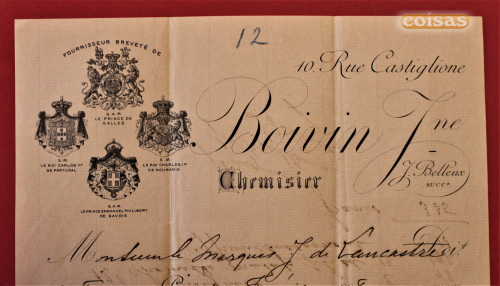 coisas
12
FOURNISSEUR BREVETÉ DE
S.A.R.
LE PRINCE DE
GALLES
S.M.
LE ROI CARLOS Ier
DE PORTUGAL
S.M.
LE ROI CHARLES Ier
DE ROUMANIE
S.A.R.
LE PRINCE EMMANUEL PHILIBERT
DE SAVOIE
10, Rue Castiglione
Boivin Jne
J. Belleux
SUCCr
Chemisier
Monsieur le Marquis J. de Lancastre